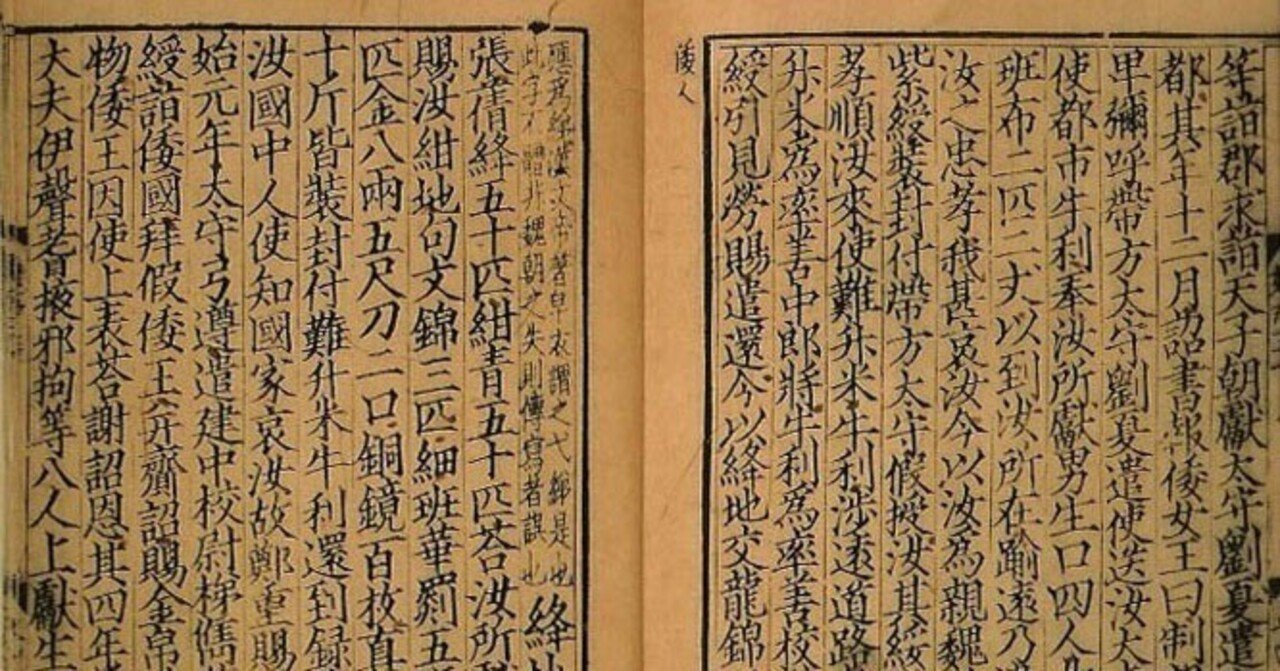 等詣郡求詣天子朝獻太守劉夏遣
都其年十二月詔書報倭女王曰制
卑彌呼帶方太守劉夏遣使送汝大
使都市牛利奉汝所獻男生口四人
班布二匹二丈以到汝所在踰遠乃
汝之忠孝我甚哀汝今以汝爲親魏
紫綬裝封付帶方太守假授汝其綏
孝順汝來使難升米牛利涉遠道路
升米爲率善中郎將牛利爲率善校
綬引見勞賜遣還今以絳地交龍錦
倭人
應爲綈漢文帝著皁衣謂之弋綈是也
此字不體非魏朝之失則傳寫者誤也
絳
張蒨絳五十匹紺青五十匹荅汝所
賜汝紺地句文錦三匹細班華罽五
匹金八兩五尺刀二口銅鏡百枚真
十斤皆裝封付難升米牛利還到録
汝國中人使知國家哀汝故鄭重賜
始元年太守弓遵遣建中校尉梯儁
綬詣倭國拜假倭王并齎詔賜金帛
物倭王因使上表荅謝詔恩其四年
大夫伊聲耆掖邪拘等八人上獻生